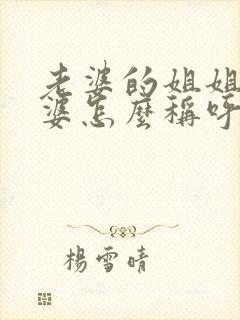 老婆的姐姐
婆怎麼稱呼
楊雪晴